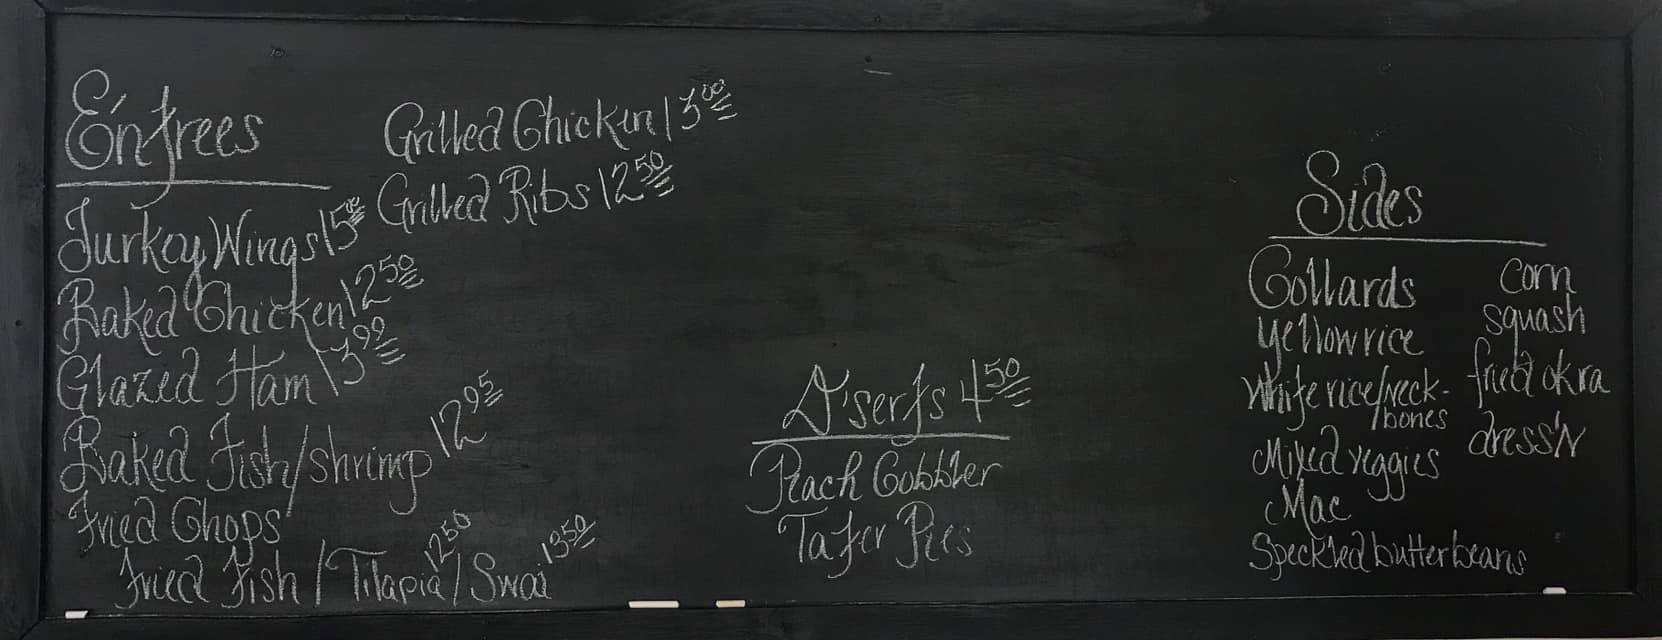 Entrees
Turkey Wings 15.00
Baked Chicken 12.50
Glazed Ham 13.99
Baked Fish/shrimp 12.95
Fried Chops
Fried Fish / Tilapia 12.50 / Swai 13.50
Grilled Chicken 13.00
Grilled Ribs 12.50
D'serts 4.50
Peach Cobbler
Tater Pies
Sides
Collards
Yellow rice
White rice/neck-
bones
Mixed veggies
Mac
Speckled butterbeans
corn
squash
fried okra
dress'N